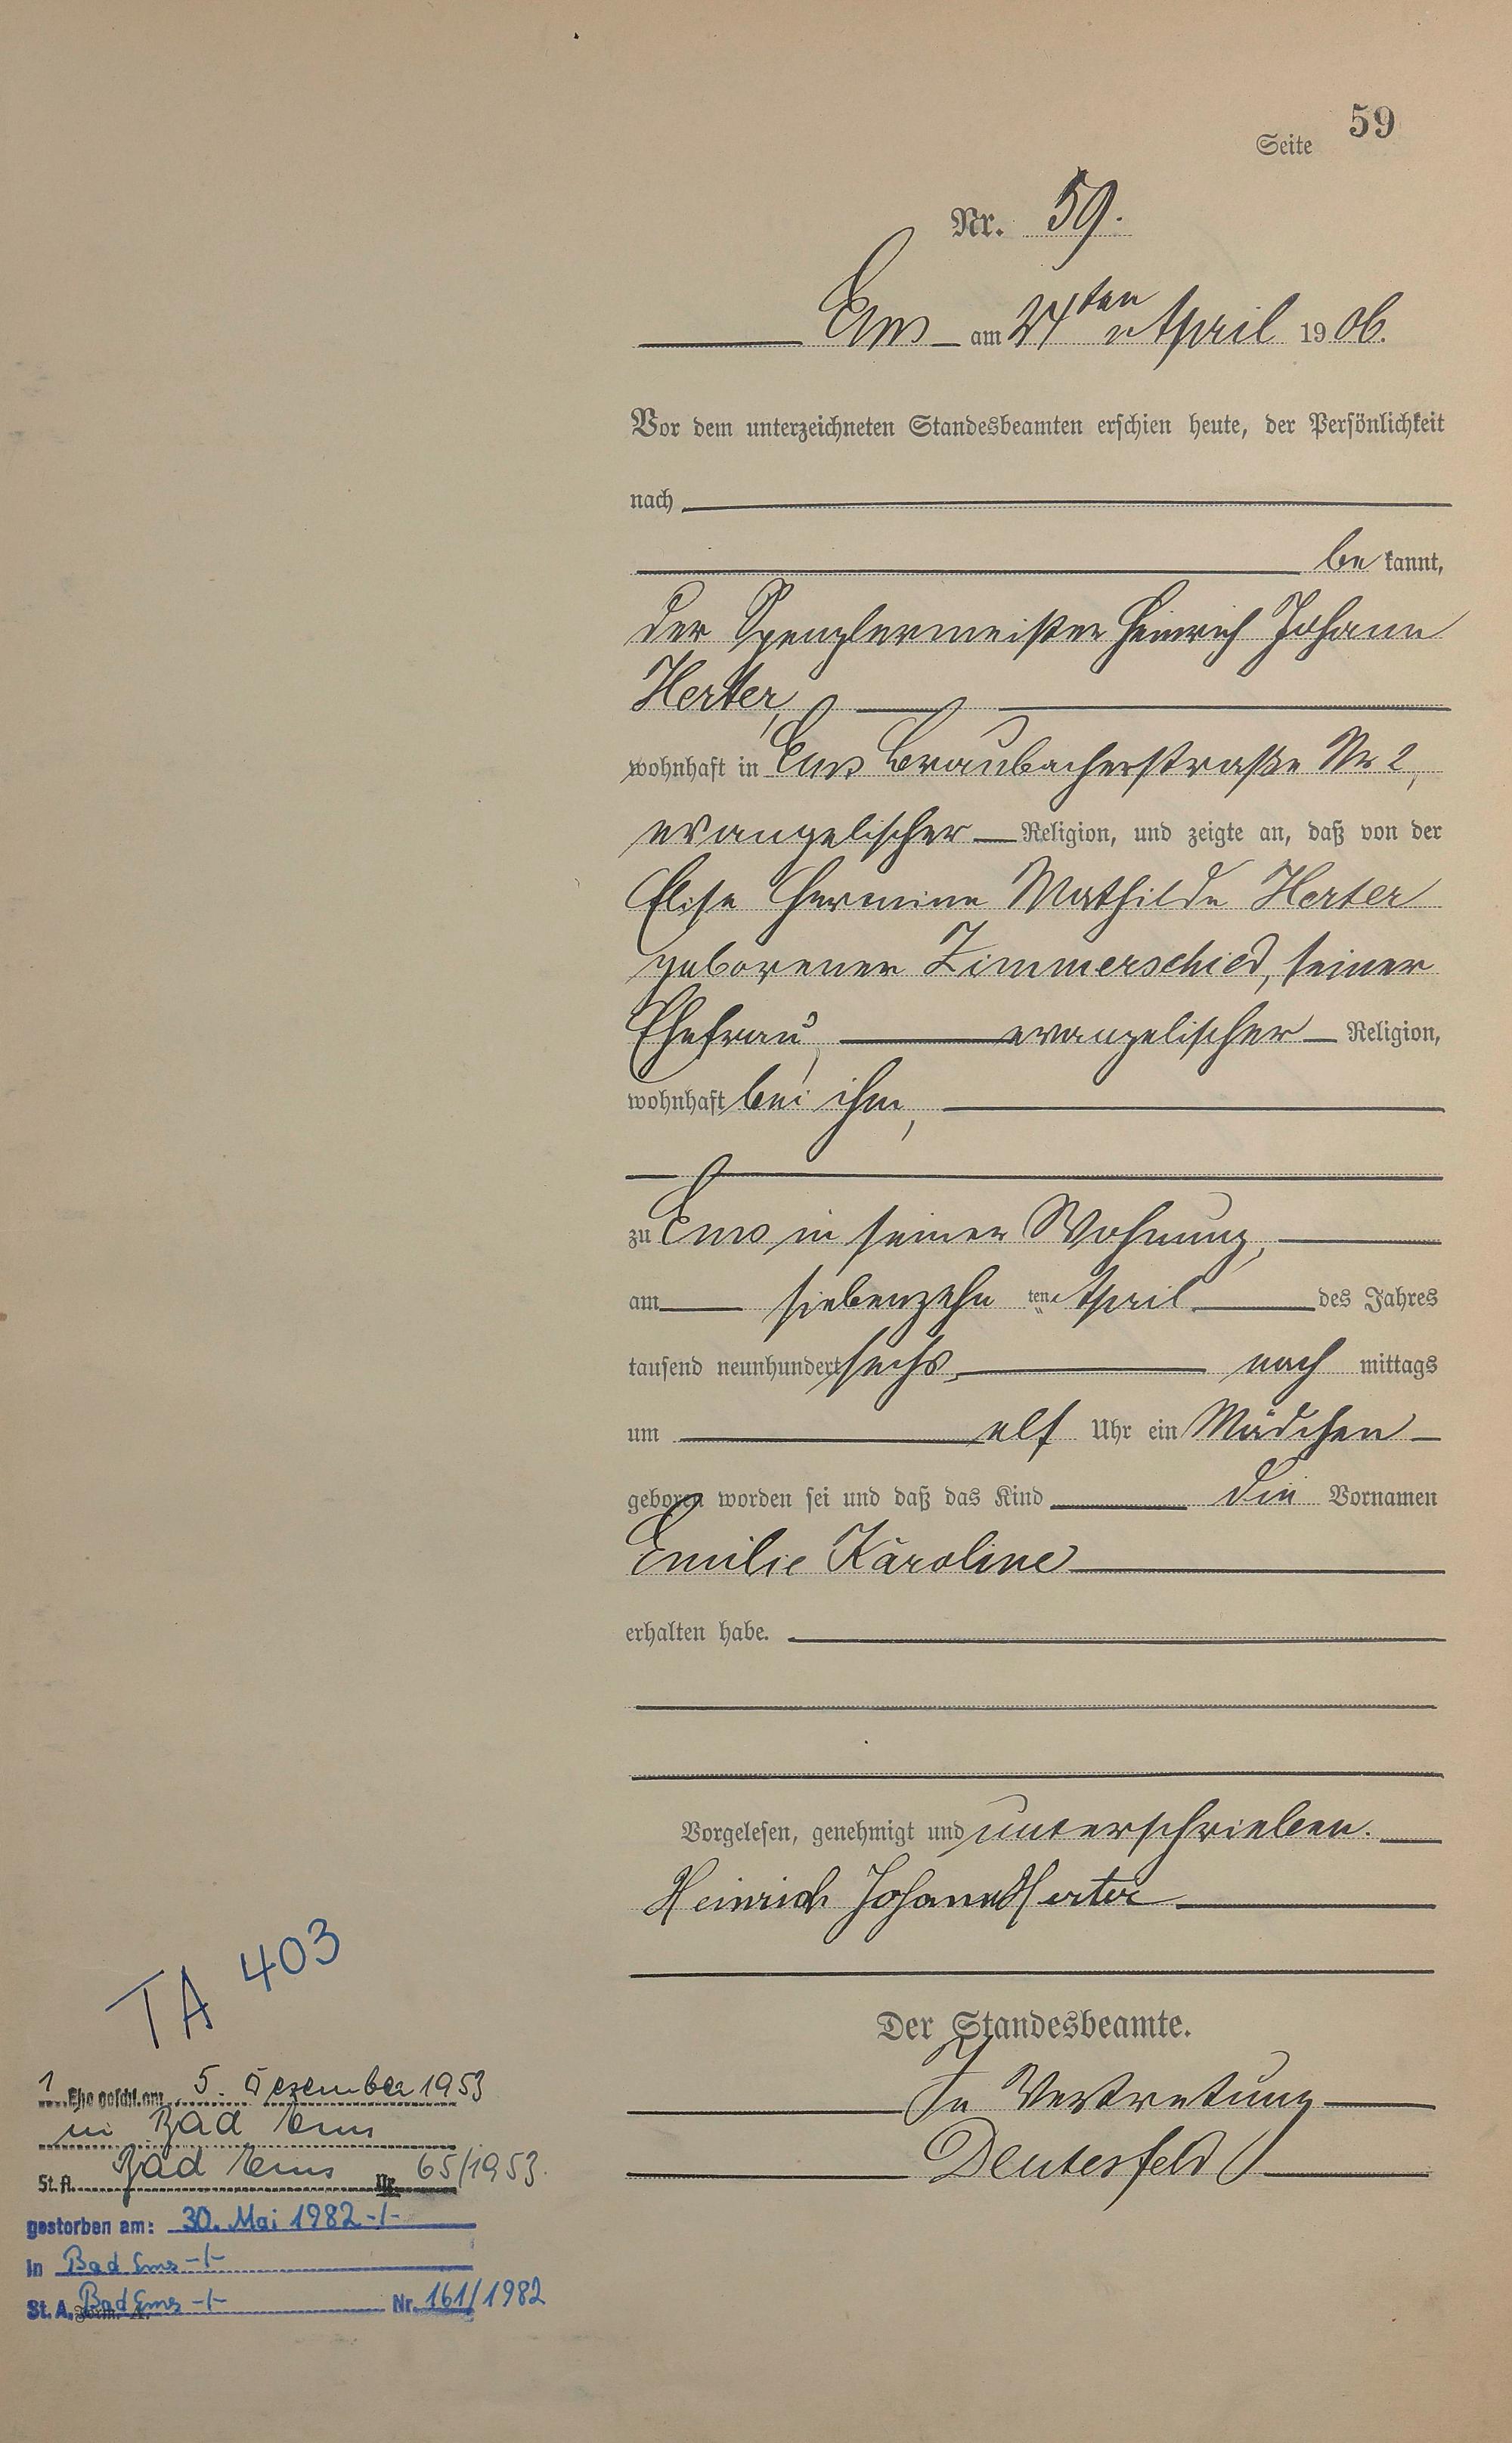 Seite 59
Nr. 59.
Ems am 24ten April 1906.
Vor dem unterzeichneten Standesbeamten erschien heute, der Persönlichkeit
nach
be kannt,
der Spenglermeister Heinrich Johann
Herter,
wohnhaft in Ems Braubacherstraße Nr 2,
evangelischer Religion, und zeigte an, daß von der
Elise Hermine Mathilde Herter
geborenen Zimmerschied, seiner
Ehefrau, evangelischer Religion,
wohnhaft bei ihm,
zu Ems in seiner Wohnung,
am siebenzehn ten April des Jahres
tausend neunhundert sechs, nach mittags
um elf Uhr ein Mädchen
geboren worden sei und daß das Kind die Vornamen
Emilie Karoline
erhalten habe.
Vorgelesen, genehmigt und unterschrieben.
Heinrich Johann Herter
Der Standesbeamte.
In Vertretung
Deutesfeld
TA 403
1 Ehe geschl. am 5. Dezember 1953
in Bad Ems
St. A. Bad Ems Nr. 65/1953.
gestorben am: 30. Mai 1982 -/-
in Bad Ems -/-
St. A. Bad Ems -/- Nr. 161/1982
Form. A.